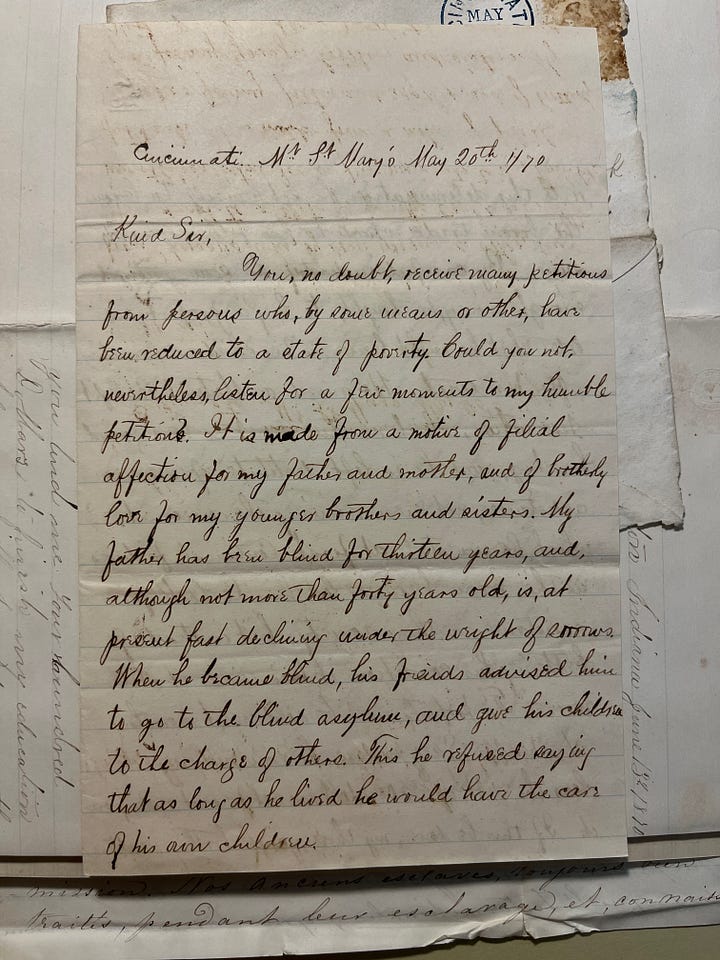 MAY
Cincinnati. Mt St Mary's May 20th 1/70
Kind Sir,
You, no doubt, receive many petitions
from persons who, by some means or other, have
been reduced to a state of poverty. Could you not,
nevertheless, listen for a few moments to my humble
petition? It is made from a motive of filial
affection for my father and mother, and of brotherly
love for my younger brothers and sisters. My
father has been blind for thirteen years, and,
although not more than forty years old, is, at
present fast declining under the weight of sorrows.
When he became blind, his friends advised him
to go to the blind asylum, and give his children
to the charge of others. This he refused saying
that as long as he lived he would have the care
of his own children.
you lend me four hundred
Dollars to finish my education
Indiana June 13th 1870
mission. Nos anciens esclaves, toujours
traités, pendant leur esclavage, et, connais